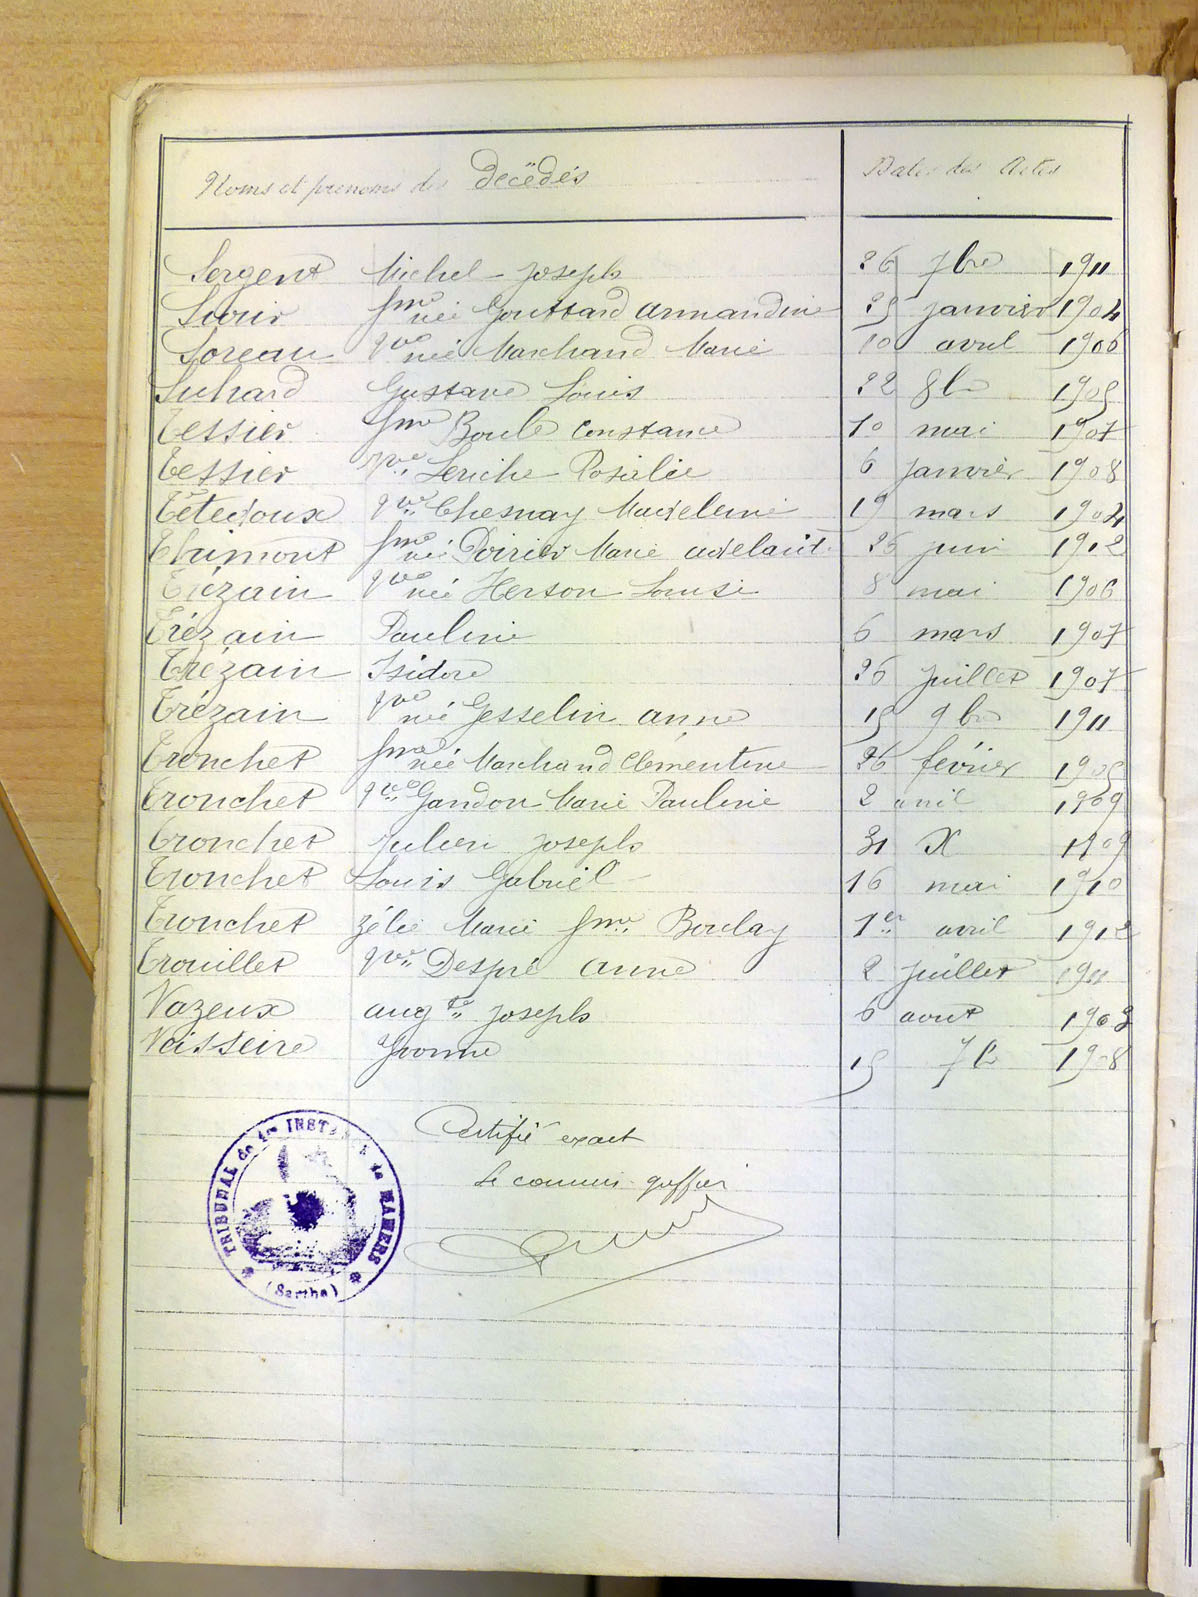 Noms et prenoms des Décédés Dates des Actes
Sergent Michel Joseph 26 7bre 1911
Sivir fme née Gouttard Armandine 25 janvier 1904
Soreau vve née Marchand Marie 10 avril 1906
Suhard Gustave Louis 22 8bre 1905
Tessier fme Boulé Constance 10 mai 1907
Tessier vve Leriche Rosalie 6 janvier 1908
Têtedoux vve Chesnay Madeleine 19 mars 1904
Thimont fme née Poirier Marie adelaïd. 26 juin 1912
Trézain vve née Herson Louise 8 mai 1906
Trézain Pauline 6 mars 1907
Trézain Isidore 26 Juillet 1907
Trézain vve née Gesselin anne 15 9bre 1911
Tronchet fme née Marchand Clémentine 26 février 1905
Tronchet vve Gandon Marie Pauline 2 avril 1909
Tronchet Julien Joseph 31 X 1909
Tronchet Louis Gabriel 16 mai 1910
Tronchet Zélie Marie fme Boulay 1er avril 1912
Trouillet vve Despré anne 2 Juillet 1911
Vazeux augte Joseph 6 aout 1903
Vaisseire Yvonne 15 7b 1908
Certifié exact
Le commis greffier
TRIBUNAL de 1re INSTANCE de MAMERS
(Sarthe)